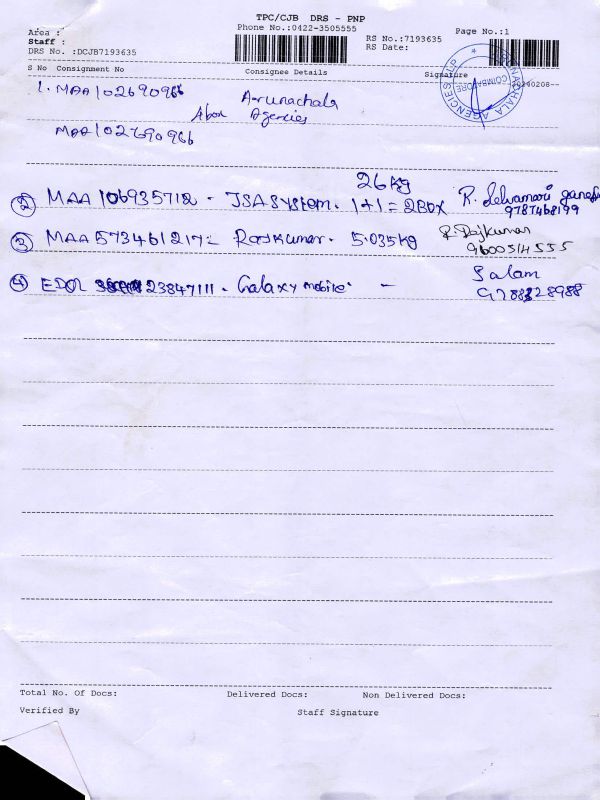 TPC/CJB DRS - PNP
Phone No.:0422-3505555
Page No.:1
Area :
Staff :
DRS No. :DCJB7193635
RS No.:7193635
RS Date:
S No Consignment No Consignee Details Signature
1. MAA102690966 Arunachala
Agencies
MAA102690966
26 kg
2 MAA 106935712 - JSA System. 1+1 = 2 Box R.
9787468199
3 MAA573461217 = Rajkumar. 5.035kg R. Rajkumar
9600514555
4 23847111 - Galaxy mobile - Salam
COIMBATORE
Total No. Of Docs: Delivered Docs: Non Delivered Docs:
Verified By Staff Signature